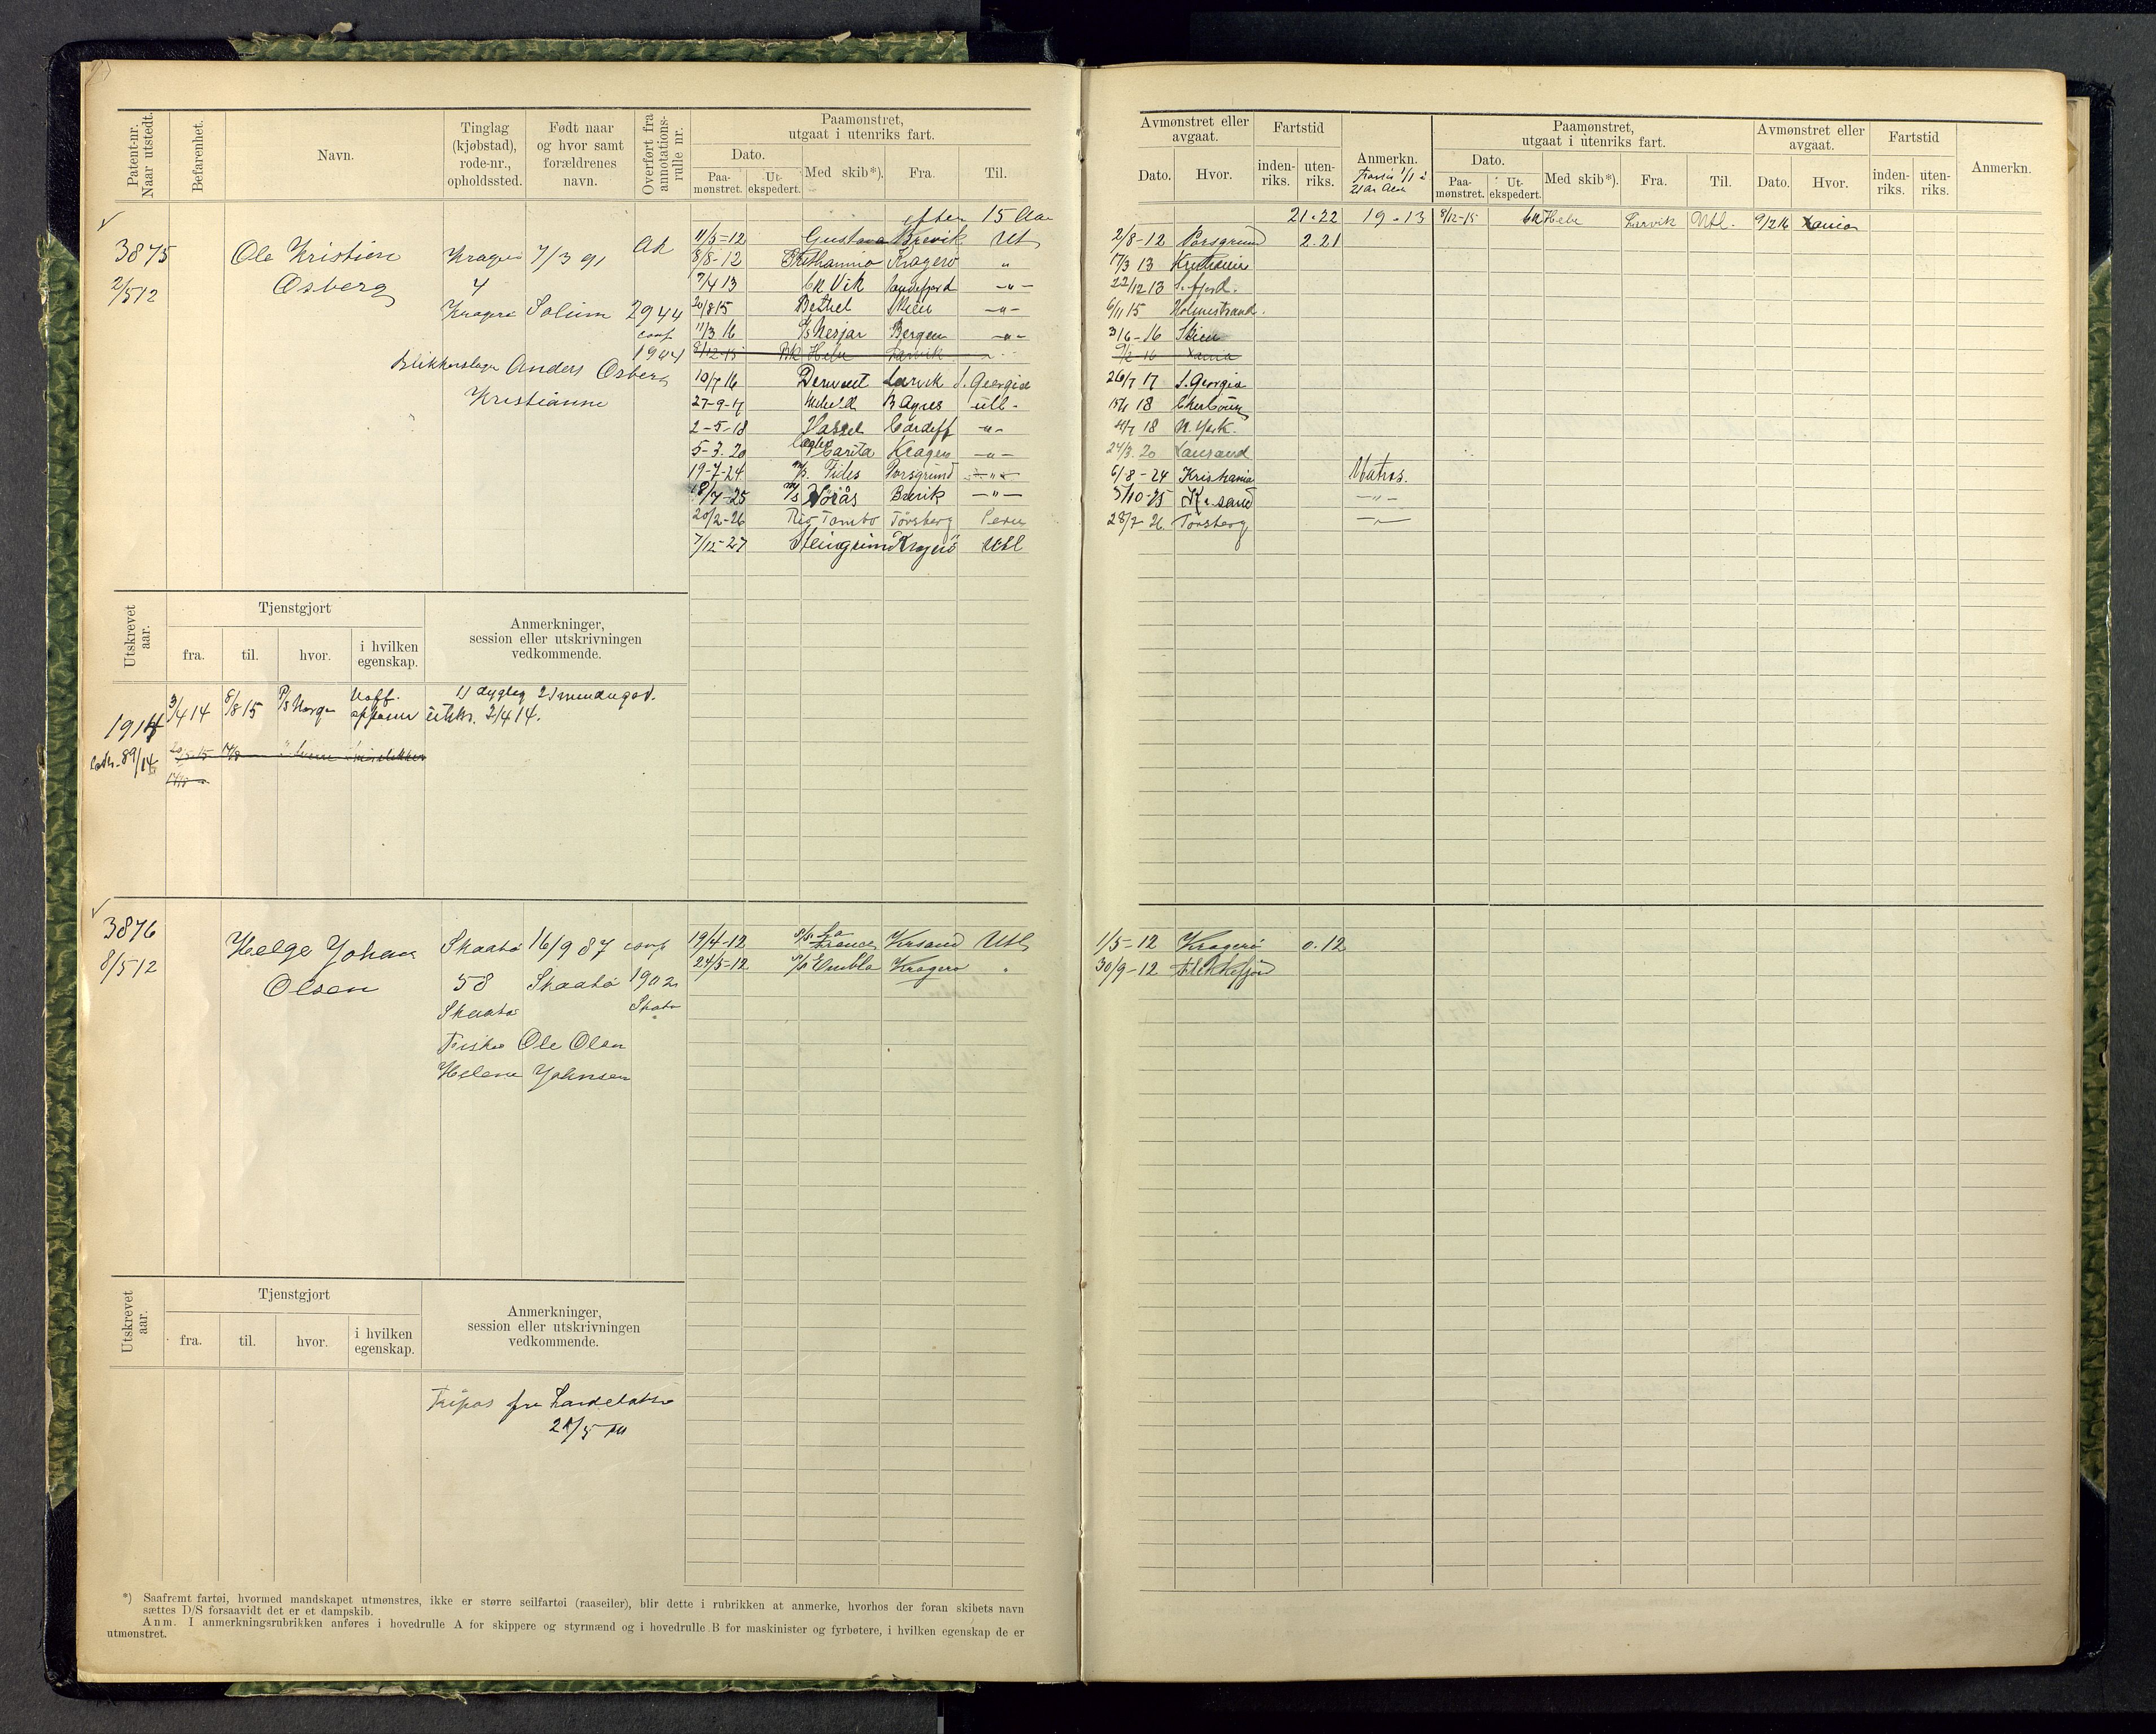 Patent-nr. Naar utstedt.
Befarenhet.
Navn.
Tinglag (kjøbstad), rode-nr., opholdssted.
Født naar og hvor samt forældrenes navn.
Overført fra annotations-rulle nr.
Paamønstret, utgaat i utenriks fart.
Dato.
Paa-mønstret.
Ut-ekspedert.
Med skib*).
Fra.
Til.
3875
2/5 12
Ole Kristian
Osberg
Kragerø
4
Kragerø
7/3 91
Solum
2944
conf
1944
Blikkenslager Anders Osberg
Kristianne
efter 15 Aar
11/5-12 Gustava Brevik Utl
8/8-12 Kragerø "
7/4 13 Bk Vik Sandefjord -"-
20/8 15 Bethel Skien -"-
11/3 16 Nesjar Bergen -"-
8/12-15 Bk Hebe Larvik
10/7 16 Derwent Larvik S. Georgia
27-9-17 B Agres utl-
2-5-18 Vassel Cardiff -"-
5-3.20 Carita Kragerø -"-
19-7-24 M/s. Fides Porsgrund -"-
18/7-25 M/s Brevik -"-
20/2-26 Rio Tambo Tönsberg Peru
7/12-27 Steingrim Kragerø Utl
Utskrevet aar.
Tjenstgjort
fra.
til.
hvor.
i hvilken egenskap.
Anmerkninger, session eller utskrivningen vedkommende.
1914
3/4 14 8/8 15 P/s Norge
1) dygtig 2)
utskr. 3/4 14.
89/14
3876
8/5 12
Helge Johan
Olsen
Skaatø
58
Skaatø
16/9 87
Skaatø
conf
1902
Skaatø
Fisker Ole Olsen
Helene Johnsen
19/4-12 La France Krsand Utl
24/5-12 Embla Kragerø "
Utskrevet aar.
Tjenstgjort
fra.
til.
hvor.
i hvilken egenskap.
Anmerkninger, session eller utskrivningen vedkommende.
Fripas fra
*) Saafremt fartøi, hvormed mandskapet utmønstres, ikke er større seilfartøi (raaseiler), blir dette i rubrikken at anmerke, hvorhos der foran skibets navn
sættes D/S forsaavidt det er et dampskib.
Anm. I anmerkningsrubrikken anføres i hovedrulle A for skippere og styrmænd og i hovedrulle B for maskinister og fyrbøtere, i hvilken egenskap de er
utmønstret.
Avmønstret eller avgaat.
Dato.
Hvor.
Fartstid
inden-riks.
uten-riks.
Anmerkn.
Paamønstret, utgaat i utenriks fart.
Dato.
Paa-mønstret.
Ut-ekspedert.
Med skib*).
Fra.
Til.
Avmønstret eller avgaat.
Dato.
Hvor.
Fartstid
inden-riks.
uten-riks.
Anmerkn.
21.22 19.13 8/12-15 Bk Hebe Larvik Utl. 9/2 16 Xania
2/8-12 Porsgrund 2.21
17/3 13 Kristiania
22/12 13 S.fjord.
6/11 15 Holmestrand.
3/6-16 Skien
9/2-16 Xania
26/7 17 S. Georgia
15/1 18 Cherbourg
4/7 18 N. York.
24/3.20 Xansand
6/8-24 Kristiania Matros.
5/10-25 Kr.sand -"-
28/7-26 Tønsberg -"-
1/5-12 Kragerø 0.12
30/9-12 Flekkefjord